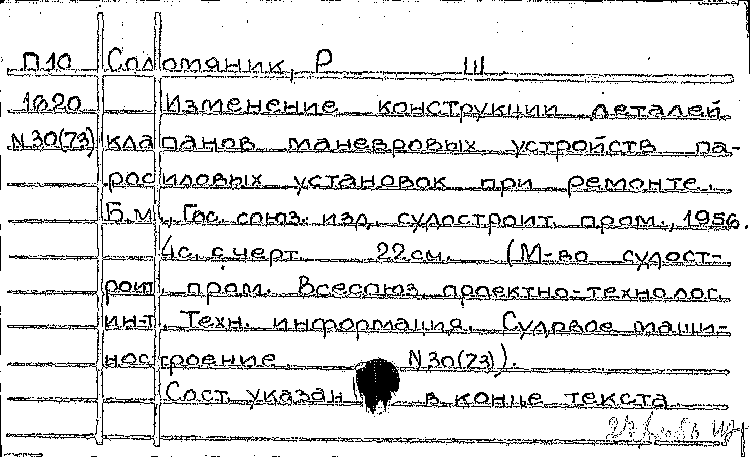 П10 Соломяник, Р Ш
1820 Изменение конструкции деталей
N30(73) клапанов маневровых устройств па-
росиловых установок при ремонте.
Б.м., Гос. союз. изд. судостроит. пром., 1956.
4с. с черт. 22см. (М-во судост-
роит. пром. Всесоюз. проектно-технолог.
ин-т. Техн. информация. Судовое маши-
ностроение N30(73)).
Сост. указан в конце текста.